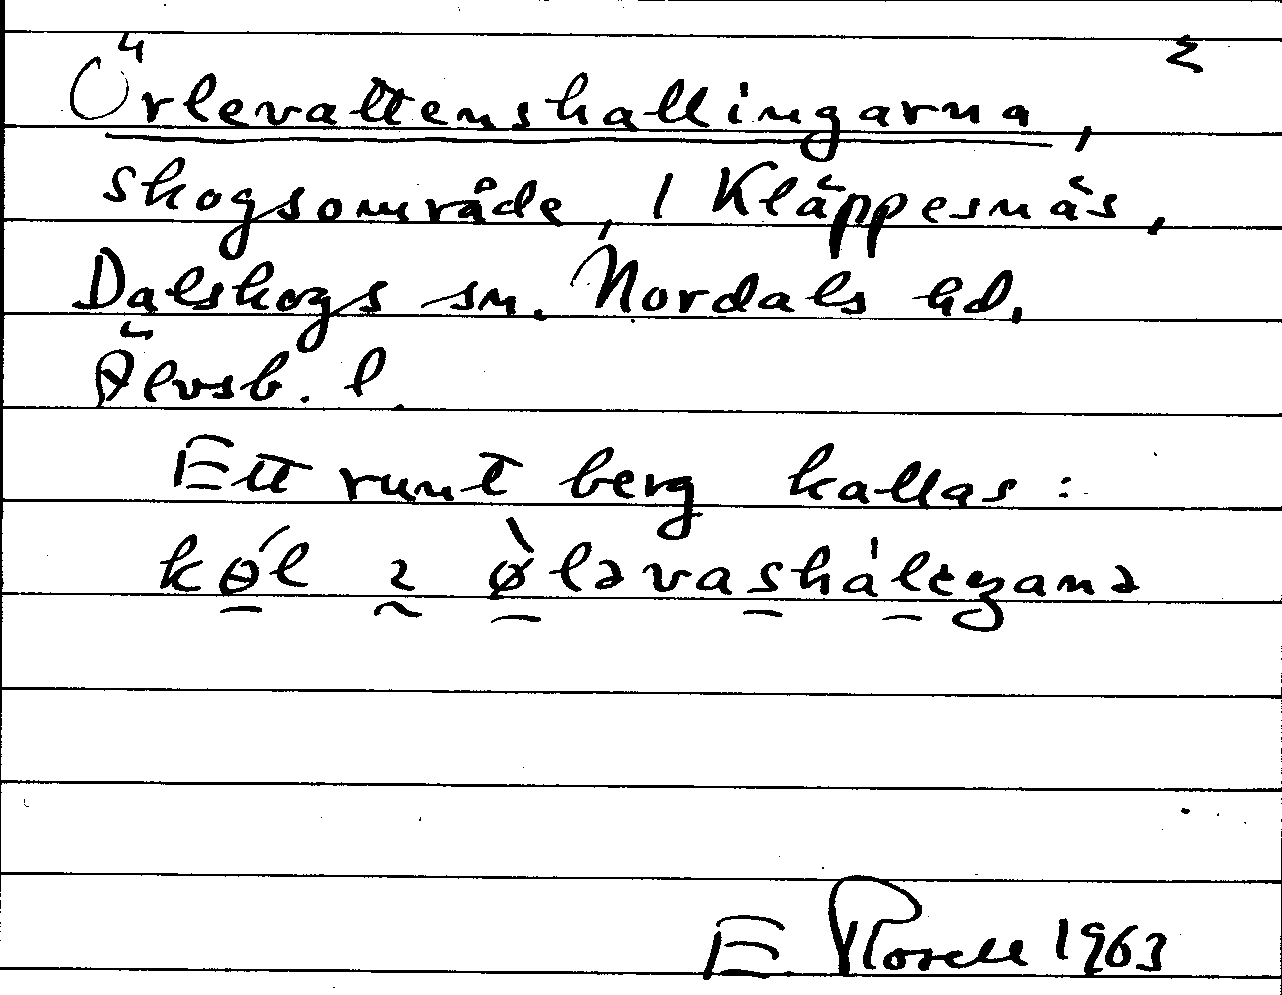 2
Örlevattenshallingarna,
skogsområde, 1 Kläppesnäs,
Dalskogs sn. Nordals hd,
Älvsb. l.
Ett runt berg kallas:
E. Rosell 1963